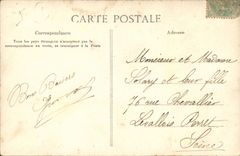 CARTE POSTALE
Correspondance
Adresse
Tous les pays étrangers n'acceptent pas la
correspondance au verso, se renseigner à la Poste
Monsieur et Madame
et leur fille
76 rue Chevallier
Levallois Perret
Seine
Bons Baisers